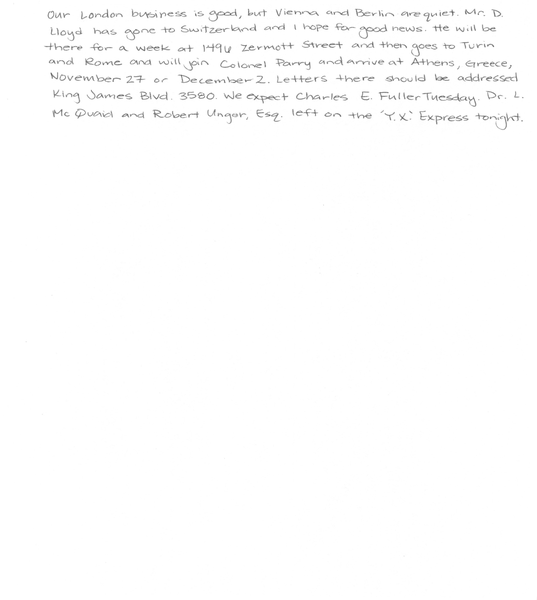 Our London business is good, but Vienna and Berlin are quiet. Mr. D.
Lloyd has gone to Switzerland and I hope for good news. He will be
there for a week at 1496 Zermott Street and then goes to Turin
and Rome and will join Colonel Parry and arrive at Athens, Greece,
November 27 or December 2. Letters there should be addressed
King James Blvd. 3580. We expect Charles E. Fuller Tuesday. Dr. L.
McQuaid and Robert Unger, Esq. left on the 'Y.X.' Express tonight.